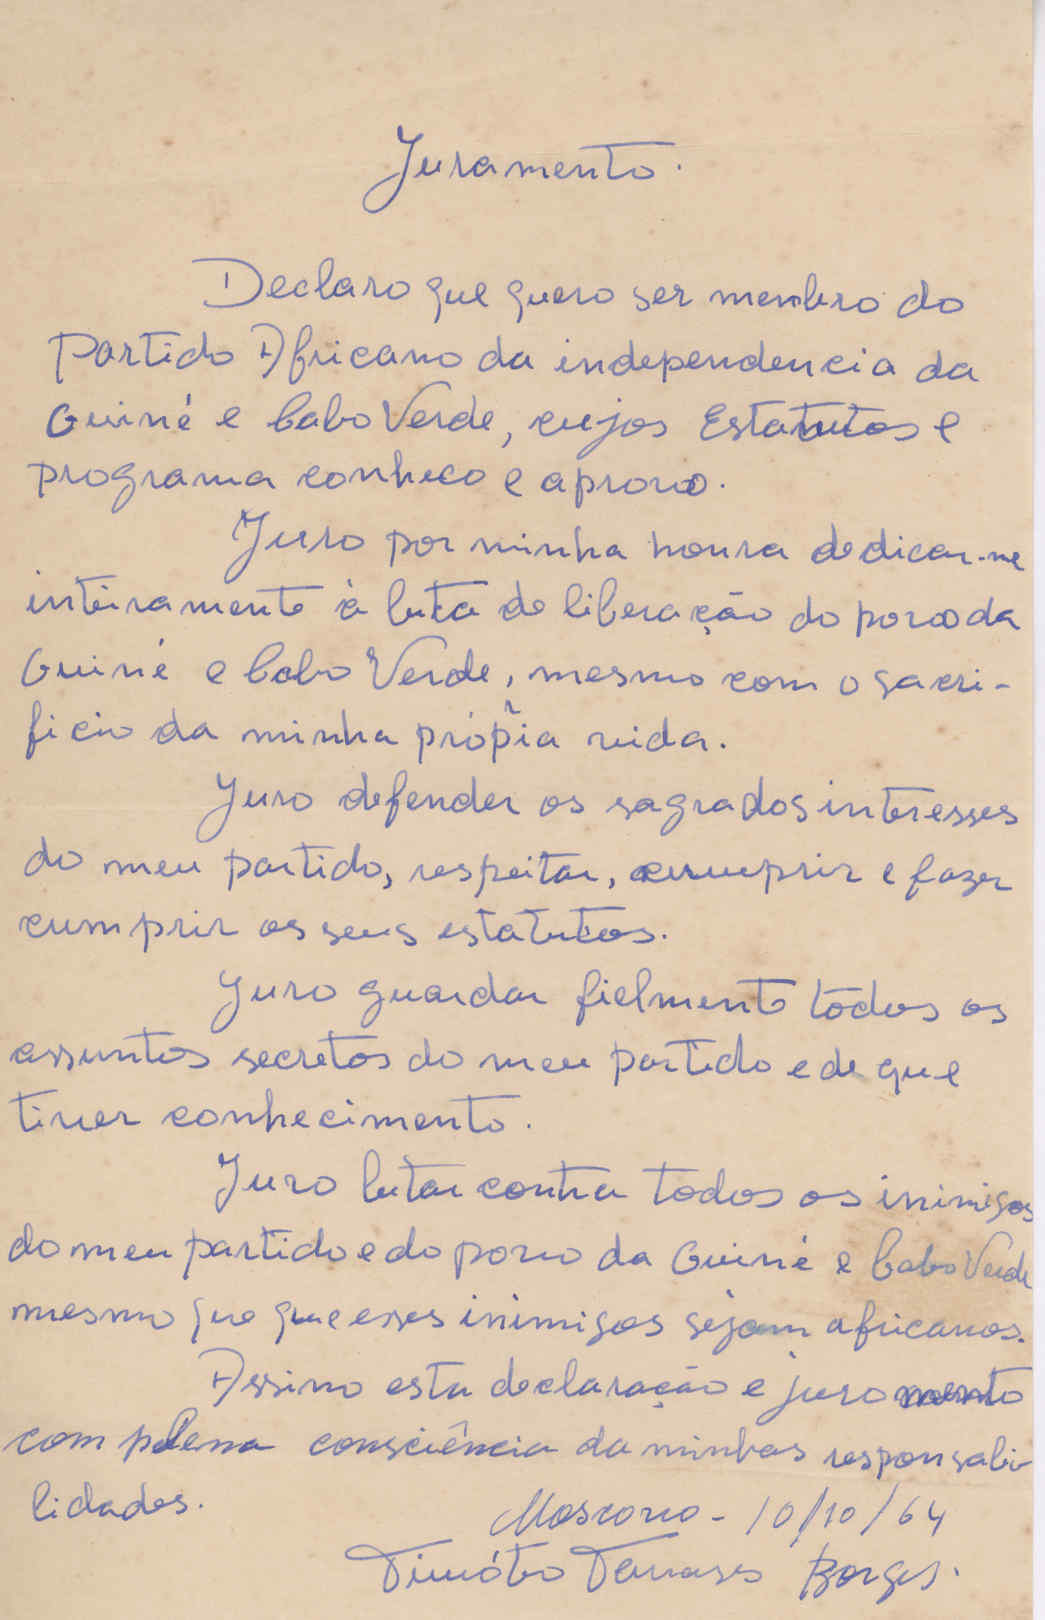 Juramento.
Declaro que quero ser membro do
Partido Africano da independencia da
Guiné e Cabo Verde, cujos Estatutos e
programa conheco e aprovo.
Juro por minha honra dedicar-me
inteiramente à luta de liberação do povo da
Guiné e Cabo Verde, mesmo com o sacri-
ficio da minha própria vida.
Juro defender os sagrados interesses
do meu partido, respeitar, cumprir e fazer
cumprir os seus estatutos.
Juro guardar fielmente todos os
assuntos secretos do meu partido e de que
tiver conhecimento.
Juro lutar contra todos os inimigos
do meu partido e do povo da Guiné e Cabo Verde
mesmo que que esses inimigos sejam africanos.
Assino esta declaração e juramento
com plena consciência da minhas responsabi-
lidades.
Moscovo - 10/10/64
Timóteo Borges.